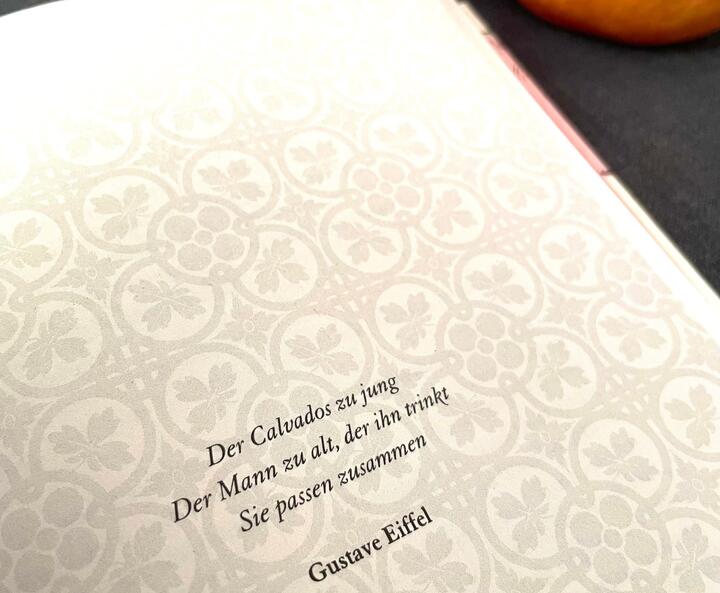 Der Calvados zu jung
Der Mann zu alt, der ihn trinkt
Sie passen zusammen
Gustave Eiffel